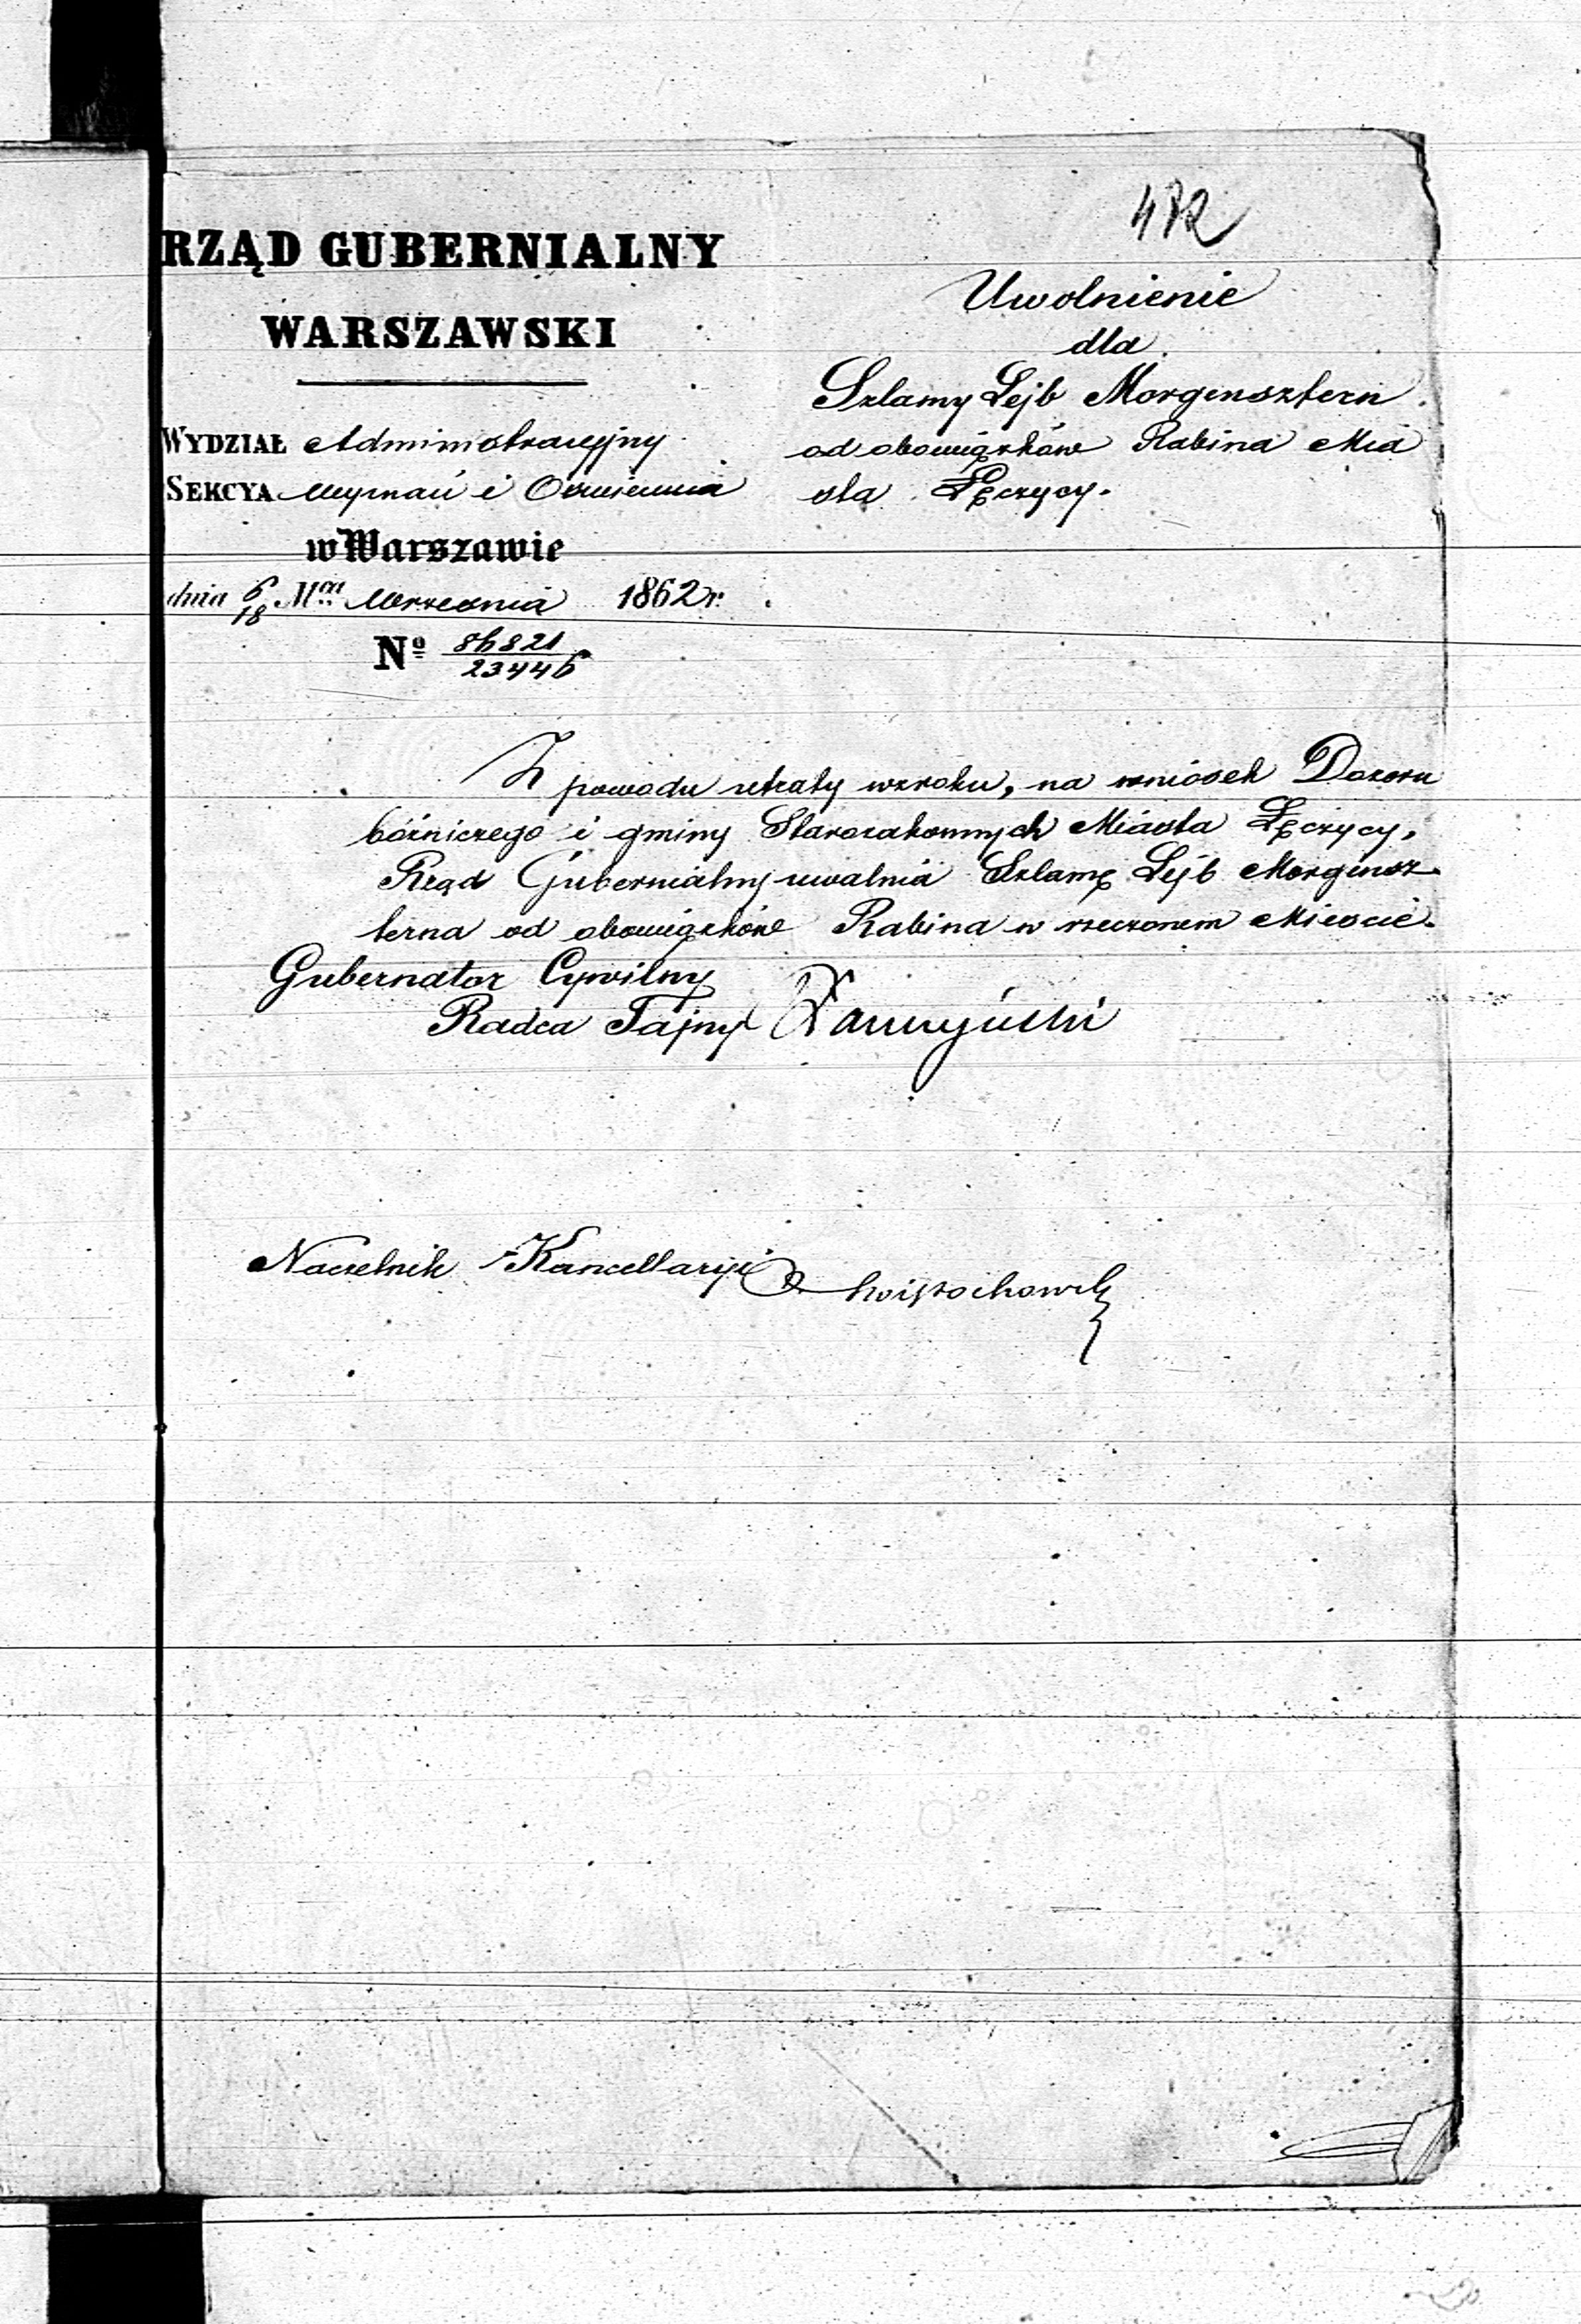 472
RZĄD GUBERNIALNY
WARSZAWSKI
WYDZIAŁ Administracyjny
SEKCYA Wyznań i Oświecenia
w Warszawie
dnia 6/18 Mca Września 1862 r.
No 86821/23446
Uwolnienie
dla
Szlamy Lejb Morgensztern
od obowiązków Rabina Mia
sta Łęczycy.
Z powodu utraty wzroku, na wniosek Dozoru
bóżniczego i gminy Starozakonnych Miasta Łęczycy,
Rząd Gubernialny uwalnia Szlamę Lejb Morgensz-
terna od obowiązków Rabina w rzeczonem Mieście.
Gubernator Cywilny
Radca Tajny Łaszczyński
Naczelnik Kancellaryi